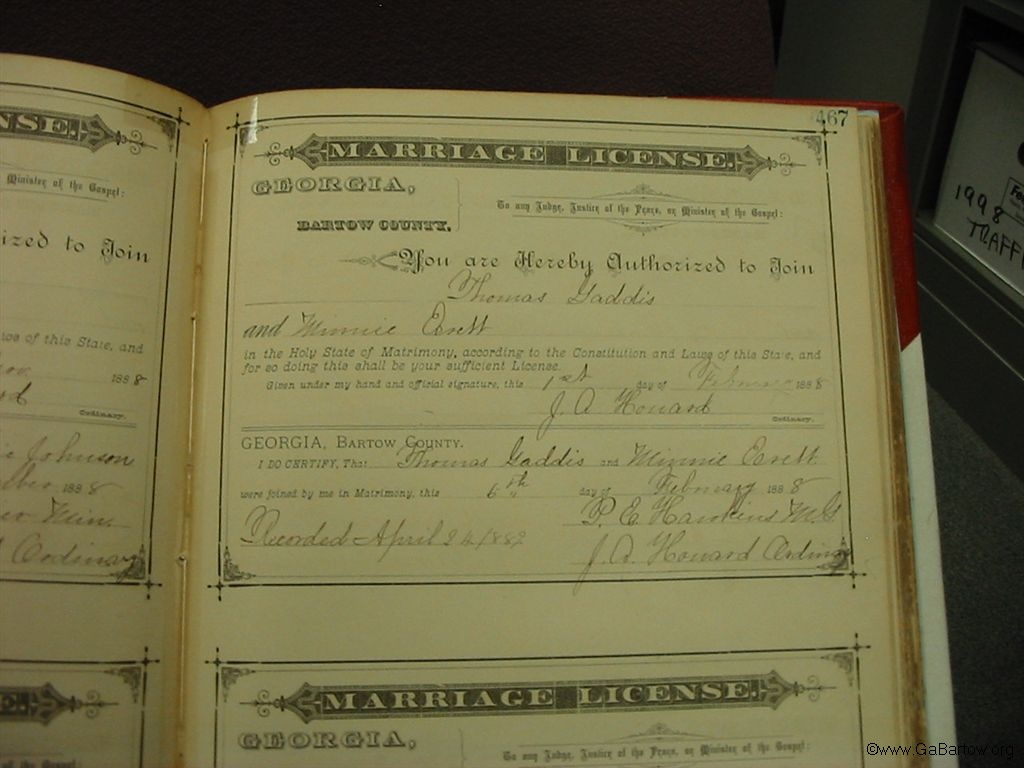 NSE.
Minister of the Gospel:
ized to Join
ws of this State, and
188 8
Ordinary.
Johnson
188 8
Ordinary
467
MARRIAGE LICENSE.
GEORGIA,
BARTOW COUNTY.
To any Judge, Justice of the Peace, or Minister of the Gospel:
You are Hereby Authorized to Join
Thomas Gaddis
and Minnie Evett
in the Holy State of Matrimony, according to the Constitution and Laws of this State, and
for so doing this shall be your sufficient License.
Given under my hand and official signature, this 1st day of February 1888
J. A. Howard
Ordinary.
GEORGIA, BARTOW COUNTY.
I DO CERTIFY, That Thomas Gaddis and Minnie Evett
were joined by me in Matrimony, this 6th day of February 1888
P. E. Hawkins M.G.
Recorded April 24 1889
J. A. Howard Ordinary
MARRIAGE LICENSE.
GEORGIA,
To any Judge, Justice of the Peace, or Minister of the Gospel:
1998
TRAFF
©www.GaBartow.org